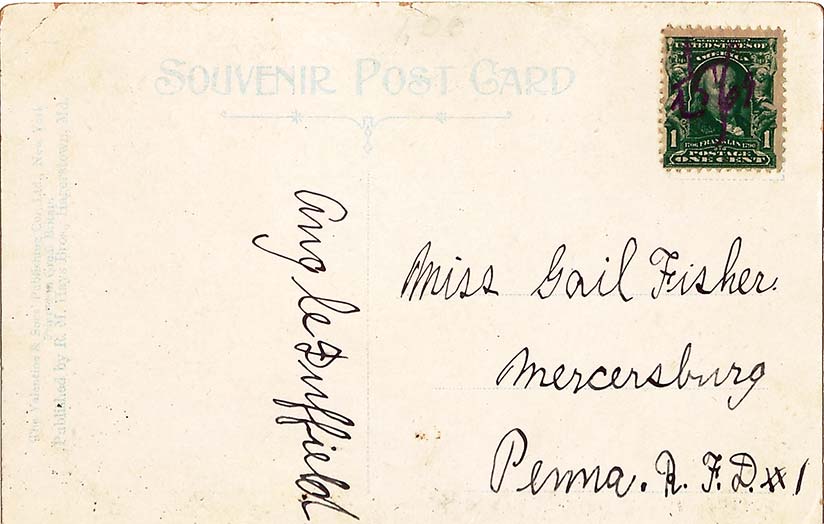 SOUVENIR POST CARD
SERIES 1902
UNITED STATES OF
AMERICA
1 1706 FRANKLIN 1790 1
POSTAGE
ONE CENT
The Valentine & Sons Publishing Co., Ltd., New York
Printed in Great Britain
Published by R. M. Hays Bros., Hagerstown, Md.
Duffield
Miss Gail Fisher.
Mercersburg
Penna. R. F. D. # 1